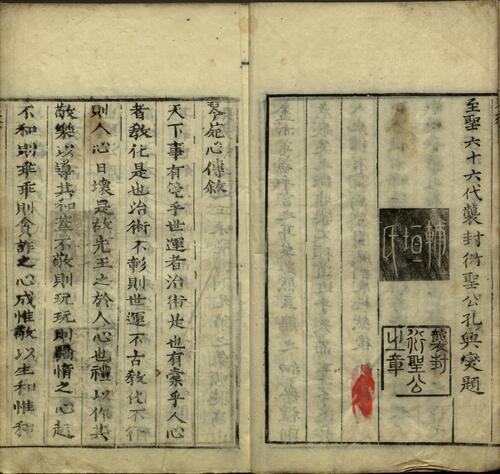 至聖六十六代襲封衍聖公孔興燮題
輔垣氏
襲封
衍聖公
之章
琴苑心傳敘
天下事有堂乎世運者治術是也有橐乎人心
者敎化是也治術不彰則世運不古敎化不行
則人心日壞是故先王之於人心也禮以作其
敬樂以導其和盖不敬則玩玩則驕惰之心起
不和則乖乖則貪詐之心成惟敬以生和惟和